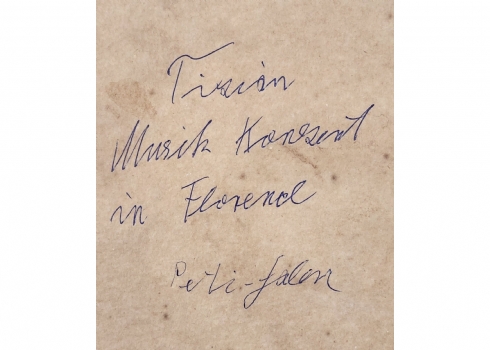 Tizian
Musik Konzert
in Florenc
Peti-